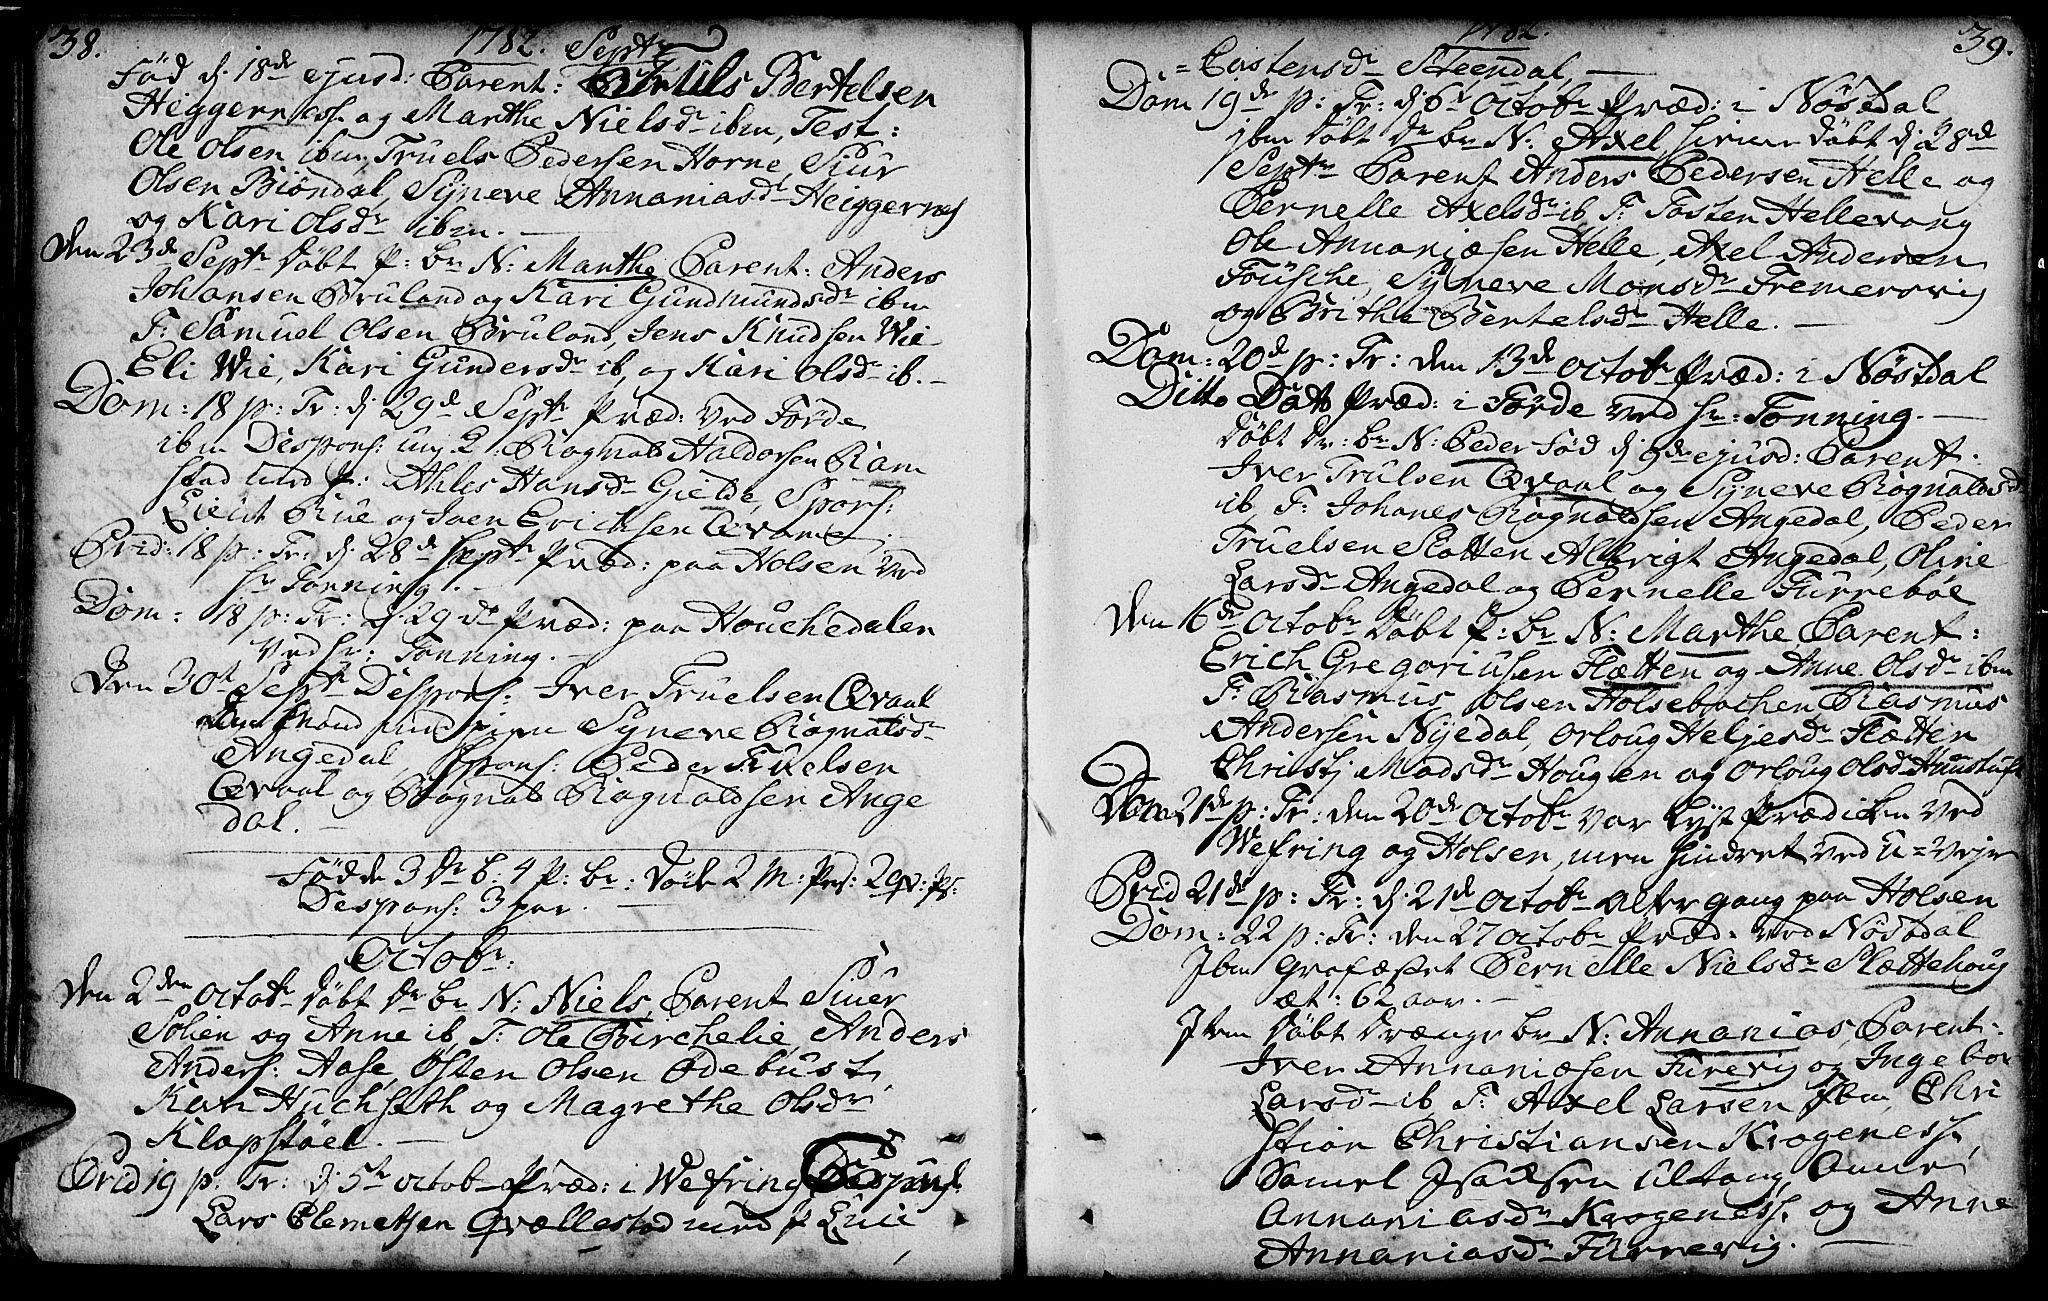 38.
1782. Septr
Fød d. 18de ejusd: Parent: Truls Bertelsen
Heggerness og Marthe Nielsdr ibm, Test:
Ole Olsen ibm, Truels Pedersen Horne, Siur
Olsen Biøndal, Syneve Annaniasdr Heiggernes
og Kari Olsdr ibm. —
Den 23de Septr døbt P: br N: Marthe Parent: Anders
Johansen Bruland og Kari Gundmundsdr ibm
T: Samuel Olsen Bruland, Jens Knudsen Wie
Eli Wie, Kari Gundersdr ib, og Kari Olsdr ib. —
Dom: 18 p: Tr: d. 29d Septr Præd: ved Førde
ibm Despons: ung C: Rognald Haldorsen Ram
stad med P: Ahles Hansdr Gielde, Spons:
Lieut Rue og Joen Erichsen Qvame.
Prid: 18 p: Tr: d. 28d Septr Præd: paa Holsen ved
hr Tonning. —
Dom: 18 p: Tr: d. 29de Præd: paa Houchedalen
ved hr: Tonning. —
Den 30t Septr Despons: Iver Truelsen Qvaal
med pigen Syneve Rognalsdr
Angedal, Spons: Peder Truelsen
Qvaal og Rognald Rognaldsen Ange
dal. —
Fødde 3 Dr b: 4 P: br: døde 2 M: Prs: 2 qv: Ps:
Despons: 3 par. —
Octobr:
Den 2den Octobr døbt Dr br N: Niels, Parent Siuer
Solien og Anne ib, T: Ole Birchelie, Anders
Anders: Aase, Østen Olsen Ødebust,
Kari Huchseth og Magrethe Olsdr
Klopstøel. —
Prid 19 p: Tr: d. 5te Octobr Præd: i Wefring Despons:
Lars Clemetsen Qvællestad med p Lucie
39.
1782.
= Tostensdr Steendal, —
Dom 19de p: Tr: d. 6te Octobr Præd: i Nøstdal
ibm døbt Dr br N: Axel, hiemme døbt d. 28de
Septr Parent Anders Pedersen Helle og
Pernelle Axelsdr ib T: Tosten Hellevang
Ole Annaniæsen Helle, Axel Andersen
Tousche, Syneve Monsdr Fremersvig
og Brithe Bertelsdr Helle. —
Dom: 20de p: Tr: den 13de Octobr Præd: i Nøstdal
Ditto Dato Præd: i Førde ved hr: Tonning. —
døbt Dr: br N: Peder fød d. 9de ejusd: Parent.
Iver Trulsen Qvaal og Syneve Rognaldsdr
ib, T: Johanes Rognaldsen Angedal, Peder
Truelsen Slotten Albrigt Angedal, Oline
Larsdr Angedal og Pernelle Furrebøe
Den 16de Octobr døbt P: br N: Marthe Parent:
Erich Gregoriusen Flætten og Anne Olsdr ibm
T: Rasmus Olsen Holsebachen Rasmus
Andersen Nyedal, Orloug Heljesdr Flætten
Christj Madsdr Hougen og Orloug Olsdr Huustuft
Dom 21de p: Tr: den 20de Octobr var lyst Prædicken ved
Wefring og Holsen, men hindret ved U=vejr
Prid 21de p: Tr: d. 21de Octobr Altergang paa Holsen
Dom: 22 p: Tr: den 27 Octobr Præd: ved Nøsdal
Ibm Grafæstet Pernelle Nielsdr Slættehoug
æt: 62 aar. —
Ibm døbt Drænge br N: Annanias, Parent:
Iver Annaniæsen Furevig og Ingebor
Larsdr ib, T: Axel Larsen Ibm, Chri
stian Christiansen Krogeness,
Samel Isachsen Ultang, Anne
Annaniasdr Krogeness. og Anne
Annaniasdr Furrevig. —